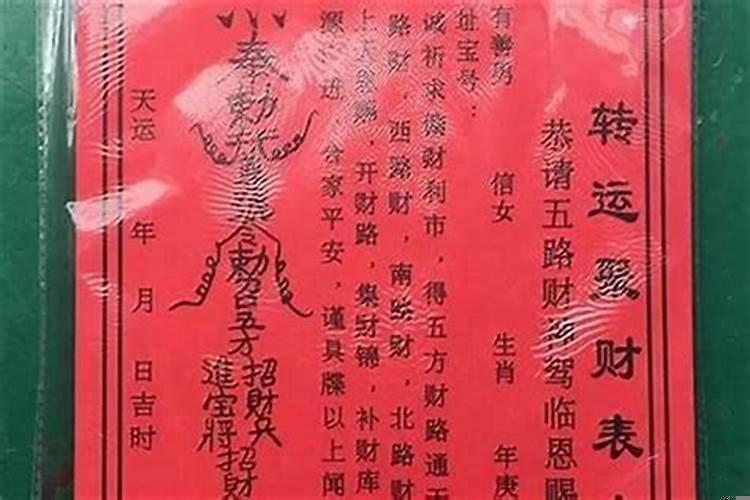 转运聚财表
恭请五路财神驾临恩赐
有善男 信女 生肖 年庚
址宝号：
诚祈求 财利市，得五方财路通
路财，西路财，南路财，北路财
上天 赐，开财路，集财锦，补财库
源 进，合家平安，谨具牒以上闻
奉敕
敕召五方
招財
進宝將招財
天运 年 月 日吉时